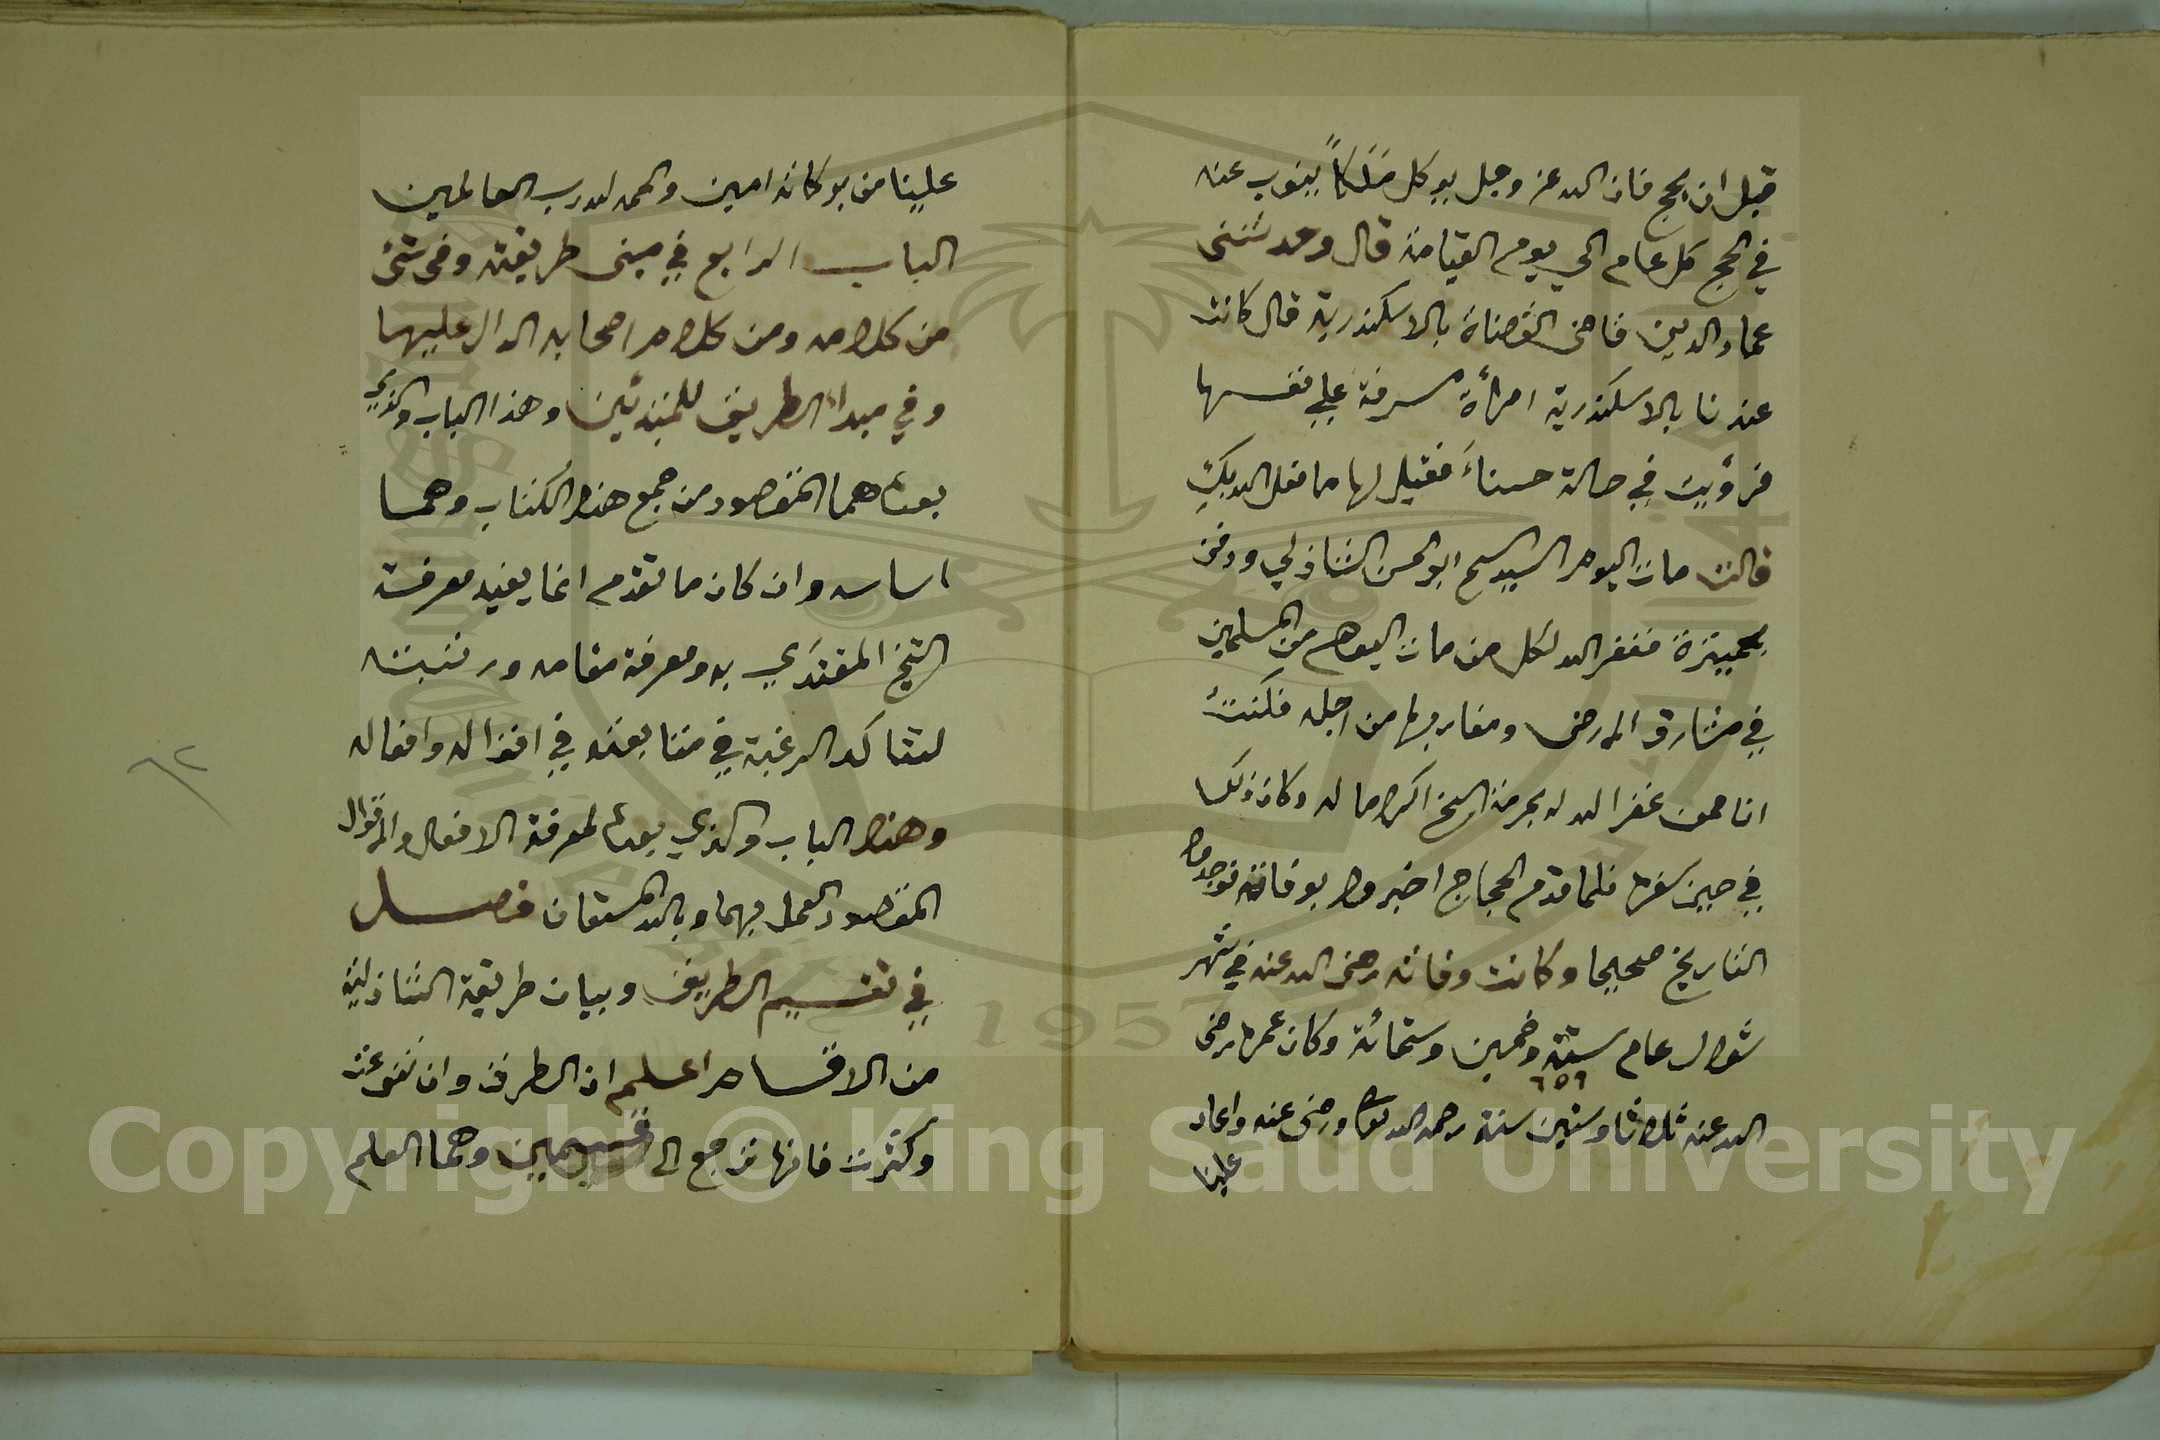 قبل ان يحج فان الله عز وجل يوكل مَلَكاً ينوب عنه
في الحج كل عام الي يوم القيامة قال وحدثنى
عماد الدين قاضى القضاة بالاسكندرية قال كانت
عندنا بالاسكندرية امرأة مسرفة علي نفسها
فرؤيت في حالة حسناءَ فقيل لها ما فعل الله بكِ
قالت مات اليوم السيد الشيخ ابو الحسن الشاذلي ودفن
بحميترة فغفر الله لكل من مات اليوم من المسلمين
في مشارق الارض ومغاربها من اجله فكنتُ
انا ممن غفر الله له بحرمة الشيخ اكراما له وكان ذلك
في حين سفره فلما قدم الحجاج اخبروا بوفاته فوجدوا
التاريخ صحيحا وكانت وفاته رضى الله عنه في شهر
شوال عام ستة وخمسين وستمائة وكان عمره رضى
٦٥٦
الله عنه ثلاثا وستين سنة رحمه الله تعالى ورضى عنه واعاد
علينا
علينا من بركاته امين والحمد لله رب العالمين
الباب الرابع في مبنى طريقته وفى شئ
من كلامه ومن كلام اصحابه الدال عليها
وفي مبدا الطريق للمبتدئين وهذا الباب والذي
بعده هما المقصود من جمع هذا الكتاب وهما
اساسه وان كان ما تقدم انما يفيد معرفة
الشيخ المقتدَي به ومعرفة مقامه ورتبته
لتتاكد الرغبة في متابعته في اقواله وافعاله
وهذا الباب والذي بعده لمعرفة الافعال والاقوال
المقصود العمل بهما وبالله المستعان فصل
في تقسيم الطريق وبيان طريقة الشاذلية
من الاقسام اعلم ان الطرق وان تنوعت
وكثرت فانها ترجع الى قسمين وهما العلم
٦٢
Copyright © King Saud University
1957